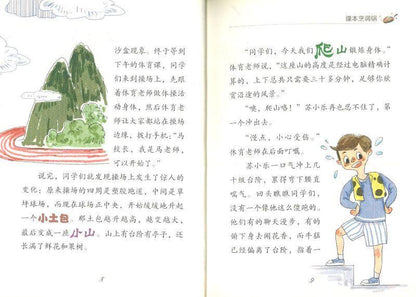 沙盒现象。终于等到
下午的体育课,同学
们来到操场上,先跟
着体育老师做体操活
动身体,然后体育老
师让大家都站在操场
边缘,拔打手:“马
校长,我是马老师,
可以开始了。”
说完,同学们就发现操场上发生了惊人的
变化:原来操场的四周是塑胶跑道,中间是草
坪球场,而现在球场正中央,开始缓缓地升起
一个小土包。那土包越升越高,越变越大,
最后变成一座小山。山上有台阶有亭子,还
长满了鲜花和果树。
8
课本烹调锅
“同学们,今天我们爬山锻炼身体。”
体育老师说,“这座山的高度是经过电脑精确计
算的,上下总共只需要三十多分钟,足够你欣
赏沿途的风景。”
“噢,爬山喽!”苏小乐忍耐不住,第
一个冲出去。
“慢点,小心受伤。”
体育老师在后面叮嘱。
苏小乐一口气冲上几
十级台阶,累得弯下腰直
喘气。回头瞧瞧同学们,
没有一个像他这么傻跑的。
他们有的聊天漫步,有的
俯下身去闻花香,而牛猛
已经偏离了台阶,沿着一
9